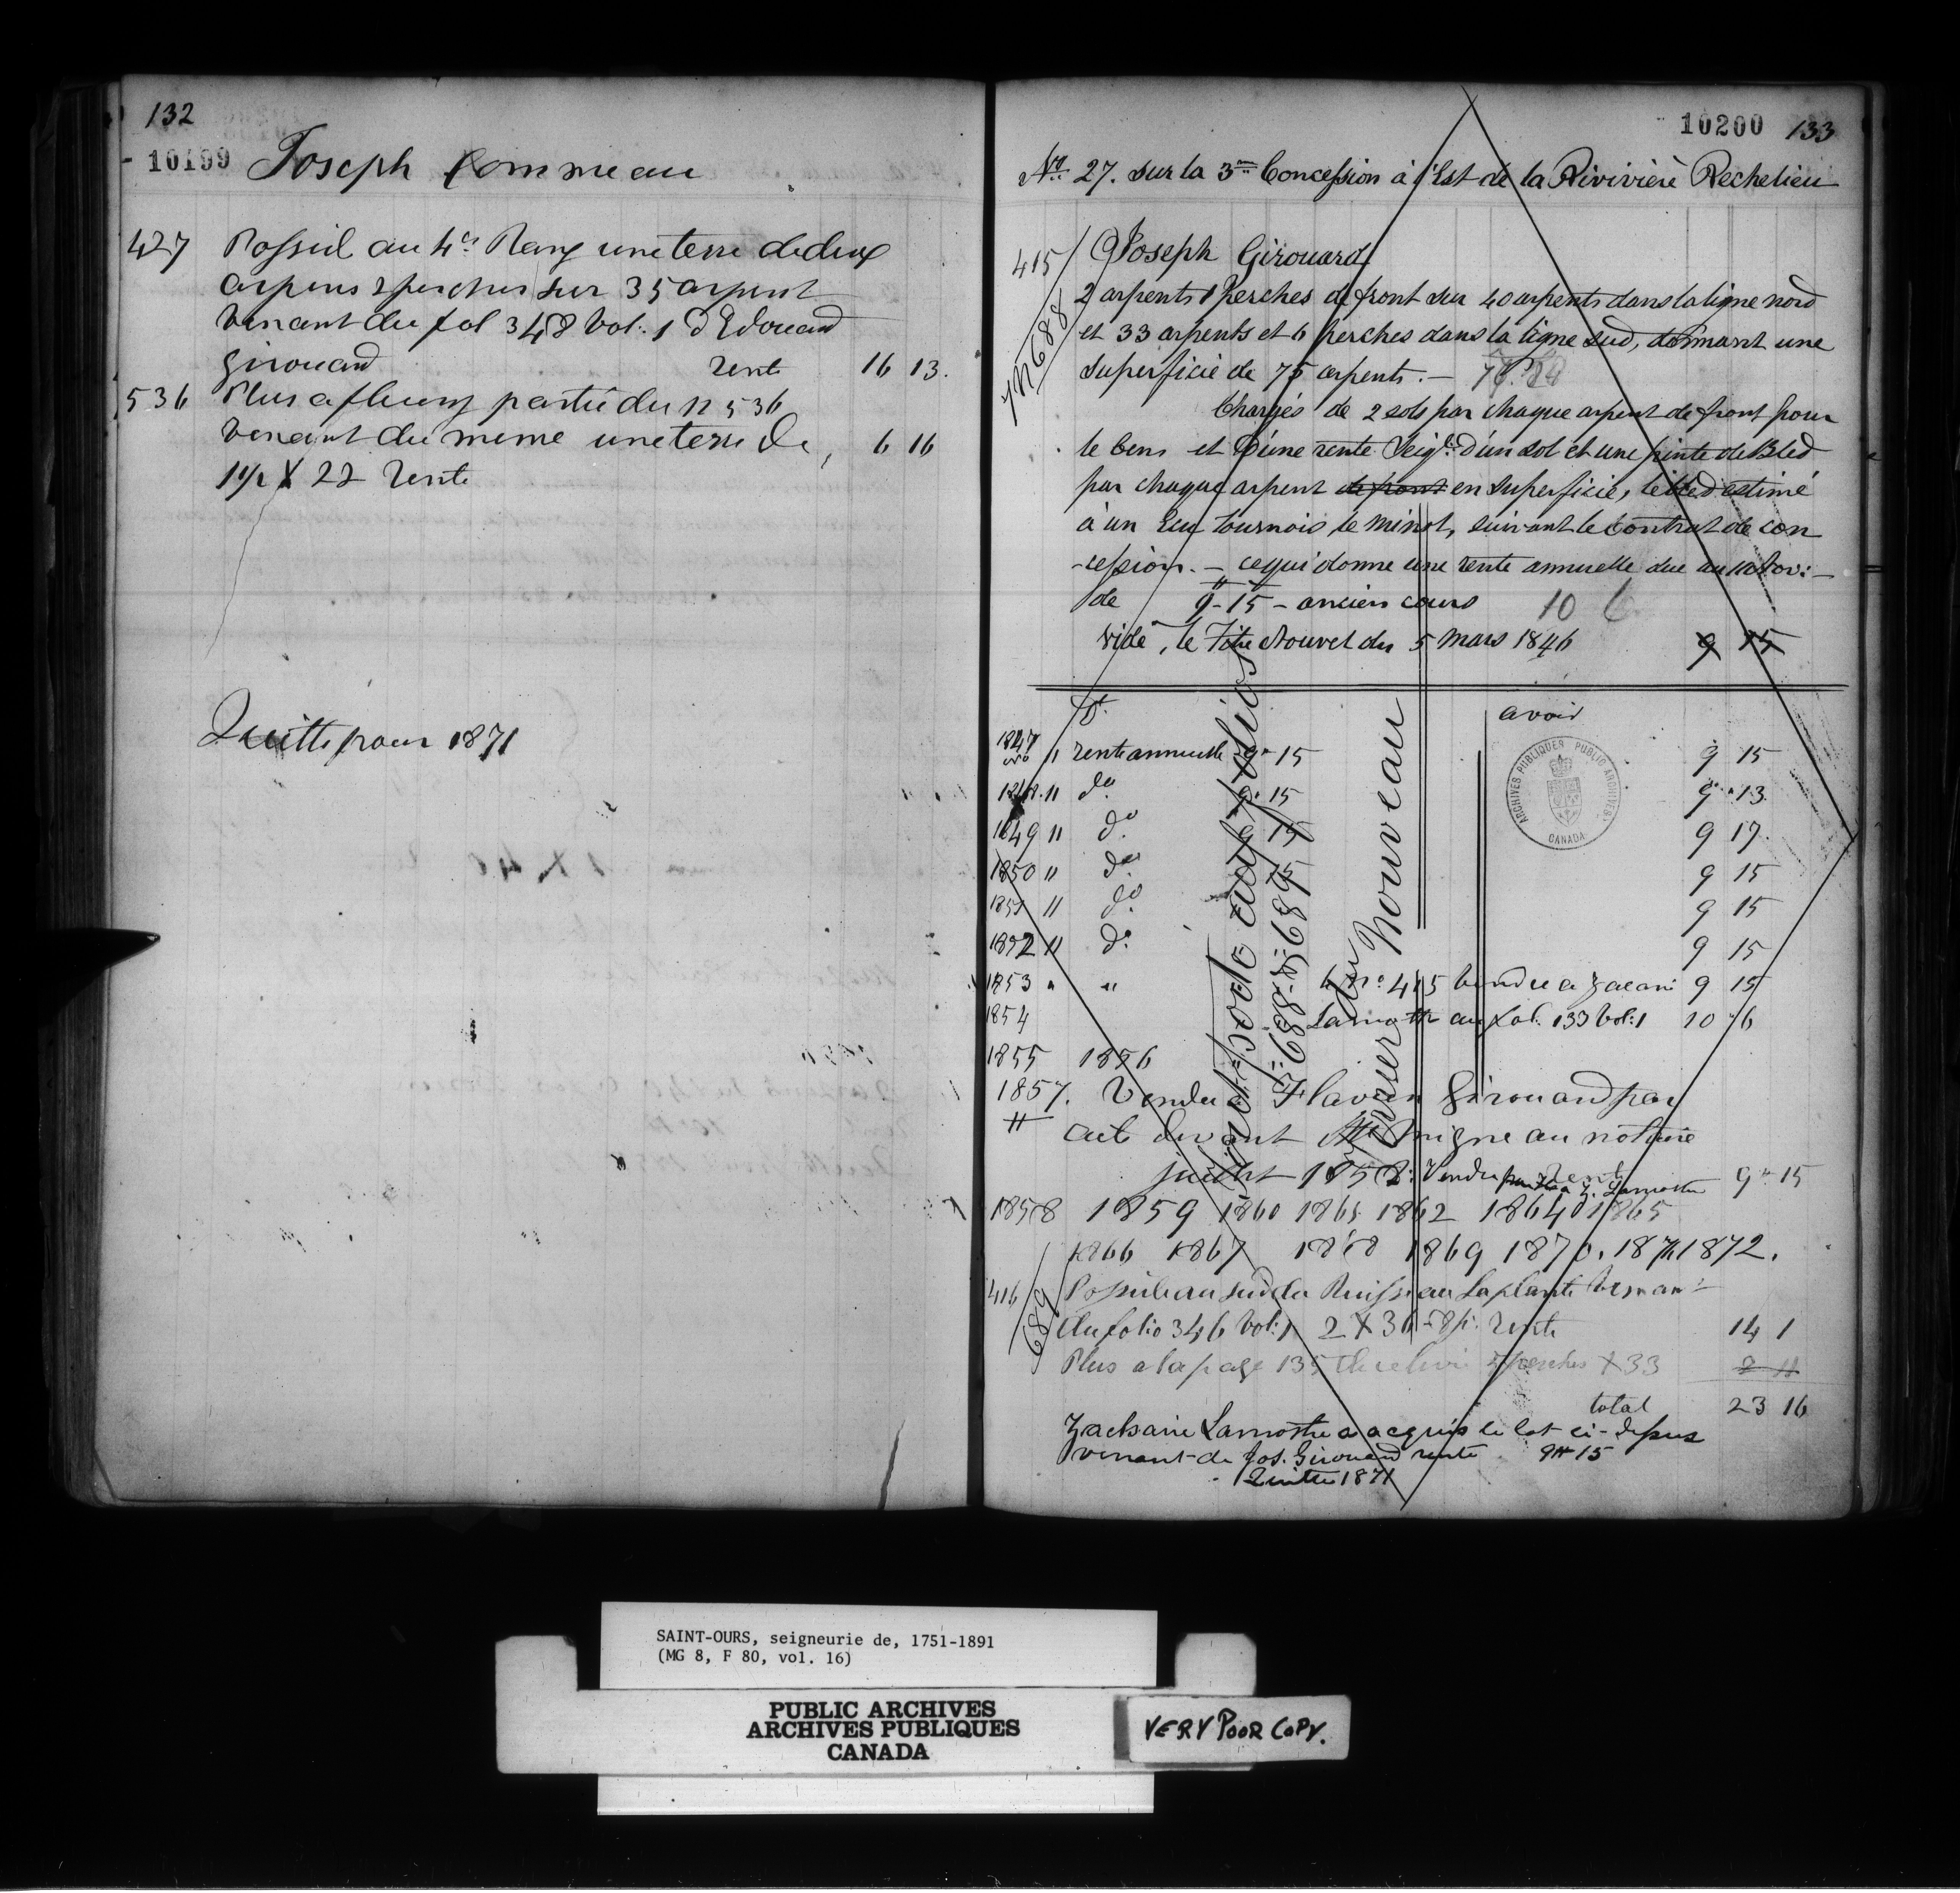 132
10199 Joseph Commeau
427 Possed au 4e Rang une terre de deux
arpens 2 perches sur 35 arpent
venant du fol 348 Vol: 1 d Edouard
Girouard rente 16 13.
536 Plus a fleury partie du n 536
venant du meme une terre de, 6 16
1 1/2 X 22 rente
Quitte pour 1871
10200 133
No 27. sur la 3me Concession à l'Est de la Rivivière Rechelieu
415 Joseph Girouard
No 688
2 arpents 1 Perches de front sur 40 arpents dans la ligne nord
et 33 arpents et 6 perches dans la ligne sud, donnant une
superficie de 75 arpents. —
Chargés de 2 sols par chaque arpent de front pour
le Cens et d'une rente Seigle: d'un sol et une pinte de Bled
par chaque arpent de front en superficie, le bled estimé
à un Ecu tournois le minot, suivant le Contrat de con
-cession. — ce qui donne une rente annuelle due au 11 Nov: —
de 9 - 15 - ancien cours 10 6
vide, le Titre Nouvel du 5 Mars 1846 9 15
Dt. avoir
1847 " rente annuelle 9 - 15 9 15
1848 " do. 9. 15 9 " 13
1849 " do. 9 15 9 17.
1850 " do. 15 9 15
1851 " do. 9 15
1852 " do. 9 15
1853 " " le no. 415 vendu a Zacari 9 15
1854 Lamothe au fol. 133 Vol: 1 10 " 6
1855 1856
1857. Vendu a Flavien Girouard par
acte devant Mtre Migneau notaire
juillet 1852: Vendu par rente a Z. Lamothe 9 " 15
1858 1859 1860 1861 1862 1864 1865
1866 1867 1868 1869 1870. 1871 1872.
416 Possede au sud du Ruisseau Laplante venant
689
du folio 346 Vol: 1 2 X 36 - 8 p: rente 14 1
Plus a la page 135 perches X 33
total 23 16
Zacharie Lamothe a acquis le lot ci-dessus
venant de Jos. Girouard rente 9 # 15
Quitte 1871
transporté aux folios
688 & 689
du Nouveau
ARCHIVES PUBLIQUES PUBLIC ARCHIVES
CANADA
SAINT-OURS, seigneurie de, 1751-1891
(MG 8, F 80, vol. 16)
PUBLIC ARCHIVES
ARCHIVES PUBLIQUES
CANADA
VERY POOR COPY.